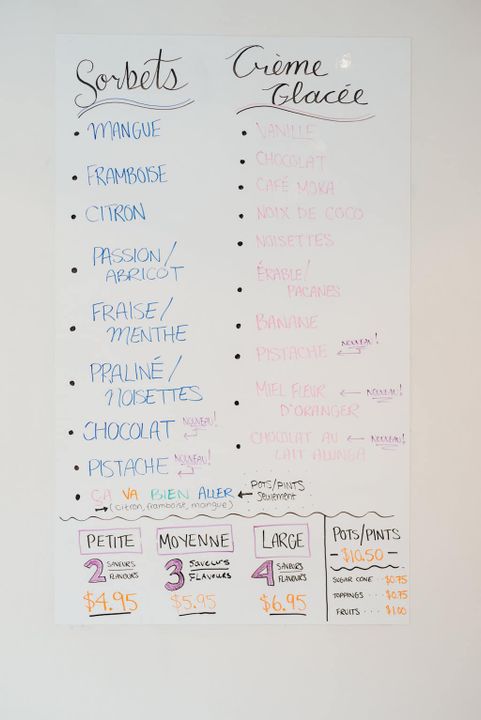 Sorbets
MANGUE
FRAMBOISE
CITRON
PASSION/
ABRICOT
FRAISE/
MENTHE
PRALINÉ/
NOISETTES
CHOCOLAT NOUVEAU!
PISTACHE NOUVEAU!
ÇA VA BIEN ALLER ← POTS/PINTS
seulement
→ (citron, framboise, mangue)
Crème
Glacée
VANILLE
CHOCOLAT
CAFÉ MOKA
NOIX DE COCO
NOISETTES
ÉRABLE/
PACANES
BANANE
PISTACHE NOUVEAU!
MIEL FLEUR ← NOUVEAU!
D'ORANGER
CHOCOLAT AU ← NOUVEAU!
LAIT ALUNGA
PETITE
2 SAVEURS
FLAVOURS
$4.95
MOYENNE
3 Saveurs
FLAVEURS
$5.95
LARGE
4 SAVEURS
FLAVEURS
$6.95
POTS/PINTS
- $10.50 -
SUGAR CONE ·· $0.75
TOPPINGS ··· $0.75
FRUITS ··· $1.00